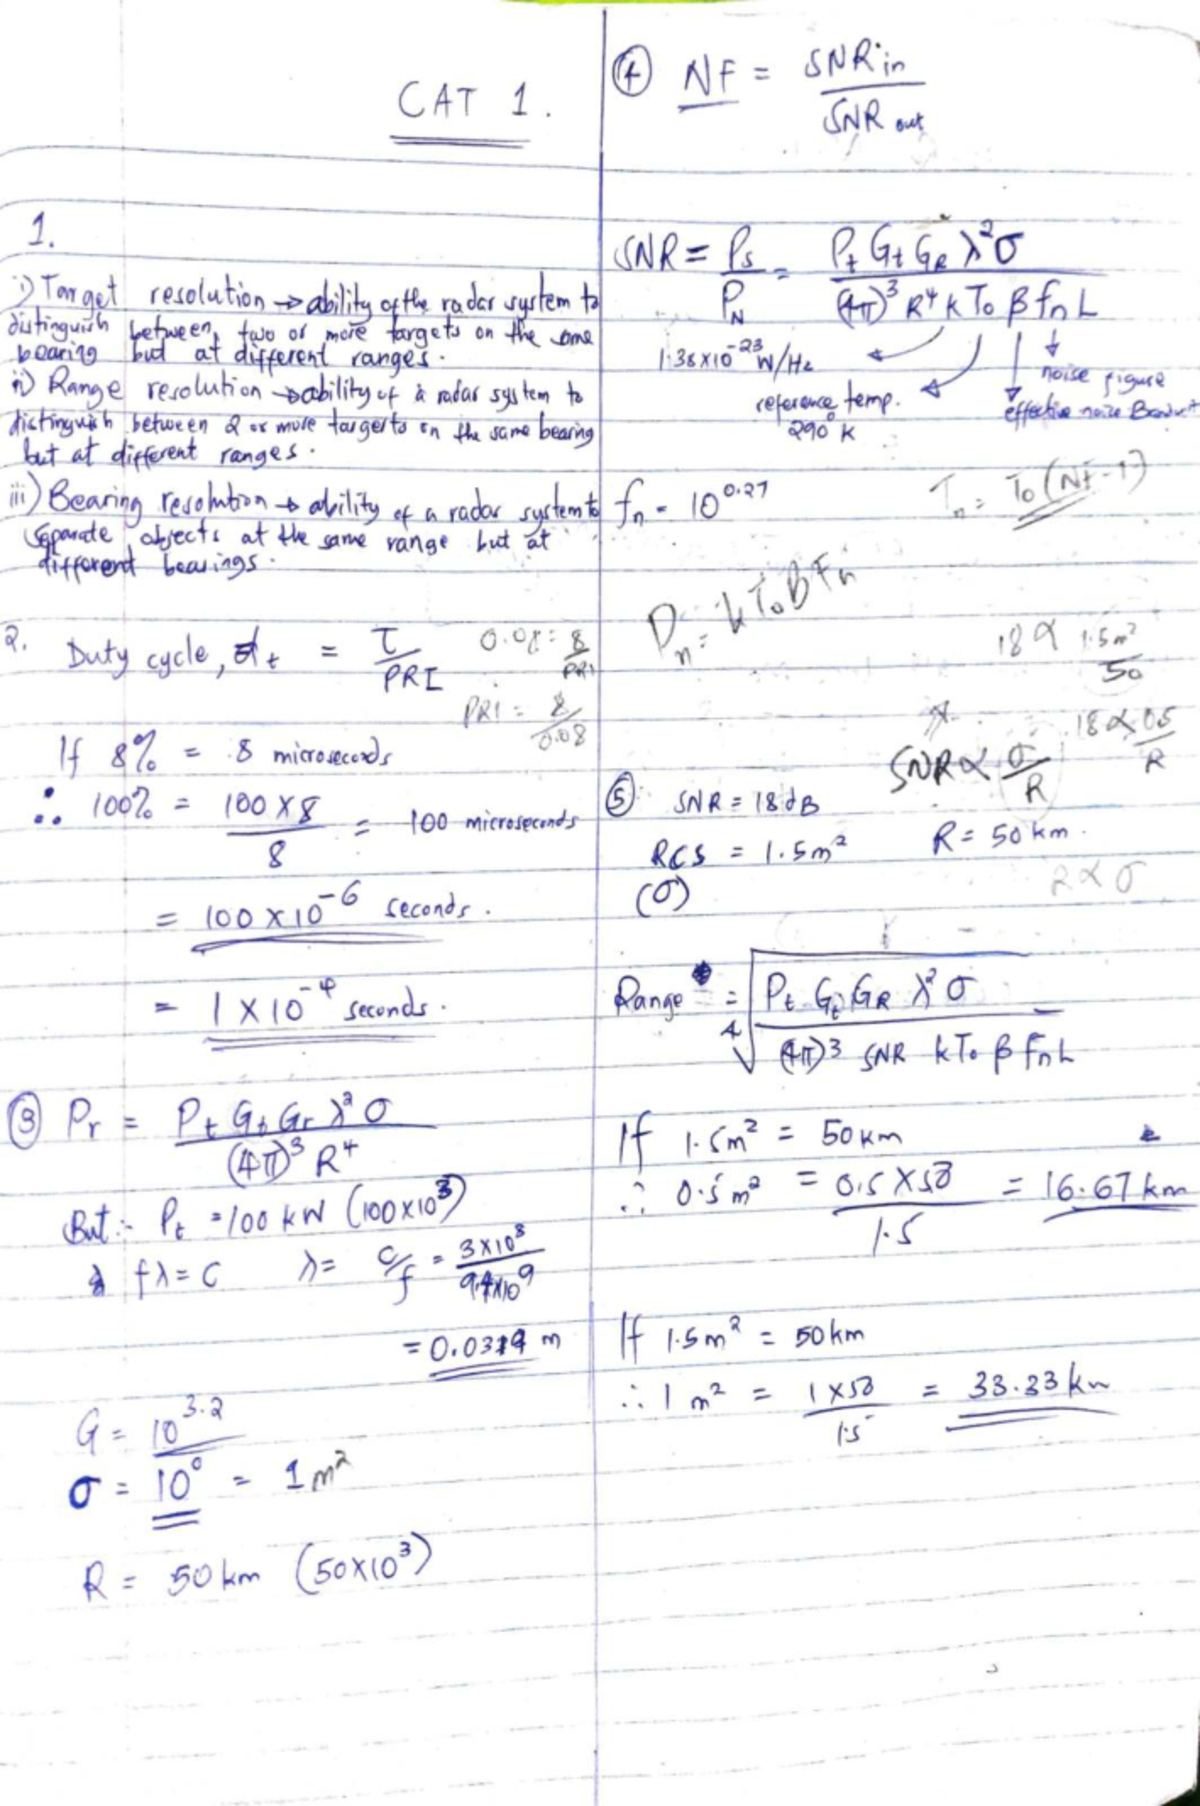 CAT 1.
1.
i) Target resolution → ability of the radar system to
distinguish between two or more targets on the same
bearing but at different ranges.
ii) Range resolution → ability of a radar system to
distinguish between 2 or more targerts on the same bearing
but at different ranges.
iii) Bearing resolution → ability of a radar system to
separate objects at the same range but at
different bearings.
2. Duty cycle, dt = τ/PRI
0.08 = 8/PRI
PRI = 8/0.08
If 8% = 8 microseconds
∴ 100% = 100 X 8 / 8 = 100 microseconds
= 100 x 10^-6 seconds.
= 1 X 10^-4 seconds.
③ Pr = Pt Gt Gr λ² σ / (4π)³ R⁴
But:- Pt = 100 kW (100x10³)
& fλ = C λ = c/f = 3x10⁸ / 9.4x10⁹
= 0.0319 m
G = 10^3.2
σ = 10⁰ = 1 m²
R = 50 km (50x10³)
④ NF = SNR in / SNR out
SNR = Ps / PN = Pt Gt GR λ² σ / (4π)³ R⁴ k To β fn L
1.38x10^-23 W/Hz
reference temp.
290° K
noise figure
effective noise
fn = 10^0.27
Tn = To (Nf - 1)
Pn = k To B Fn
18 α 1.5m² / 50
18 α 0.5 / R
SNR α σ / R
⑤ SNR = 18 dB
RCS = 1.5m² R = 50 km.
(σ)
2 α σ
Range = ⁴√ Pt Gt GR λ² σ / (4π)³ SNR k To β Fn L
If 1.5m² = 50 km
∴ 0.5 m² = 0.5 X 50 / 1.5 = 16.67 km
If 1.5m² = 50 km
∴ 1 m² = 1 x 50 / 1.5 = 33.33 km